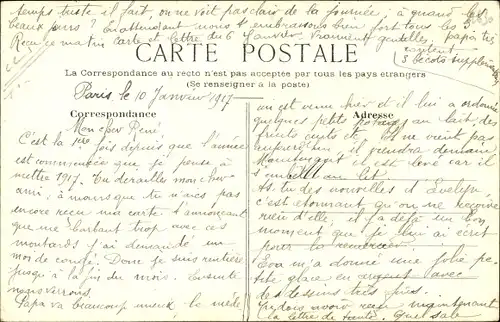 temps triste il fait, on ne voit pas clair de la journée, à quand les
beaux jours ? En attendant nous t'embrassons bien fort tous les 3
Reçu ce matin carte et lettre du 6 Janvier. Vraiment gentilles, papa t'a
5 bécots supplément
CARTE POSTALE
La Correspondance au recto n'est pas acceptée par tous les pays étrangers
(Se renseigner à la poste)
Paris le 10 Janvier 1917
Correspondance
Mon cher René,
C'est la 1ère fois depuis que l'année
est commencée que je pense à
mettre 1917. Tu dérailles mon cher
ami, à moins que tu n'aies pas
encore reçu ma carte t'annonçant
que me barbant trop avec ces
moutards j'ai demandé un
mois de congé. Donc je suis rentière
jusqu'à la fin du mois. Ensuite
nous verrons.
Papa va beaucoup mieux, le méde
Adresse
cin est venu hier et il lui a ordonné
quelques petits potages au lait des
fruits cuits etc. Ne vient pas
aujourd'hui, il viendra demain.
Maintenant il est levé car il
s'embête au lit.
As-tu des nouvelles d'Evelyn,
c'est étonnant qu'on ne reçoive
rien d'elle, il y a déjà un bon
moment que je lui ai écrit
pour la remercier.
Eva m'a donné une jolie pe
tite glace en argent avec
des dessins très fins.
Tu dois avoir reçu maintenant
la lettre de tante. Quel sale